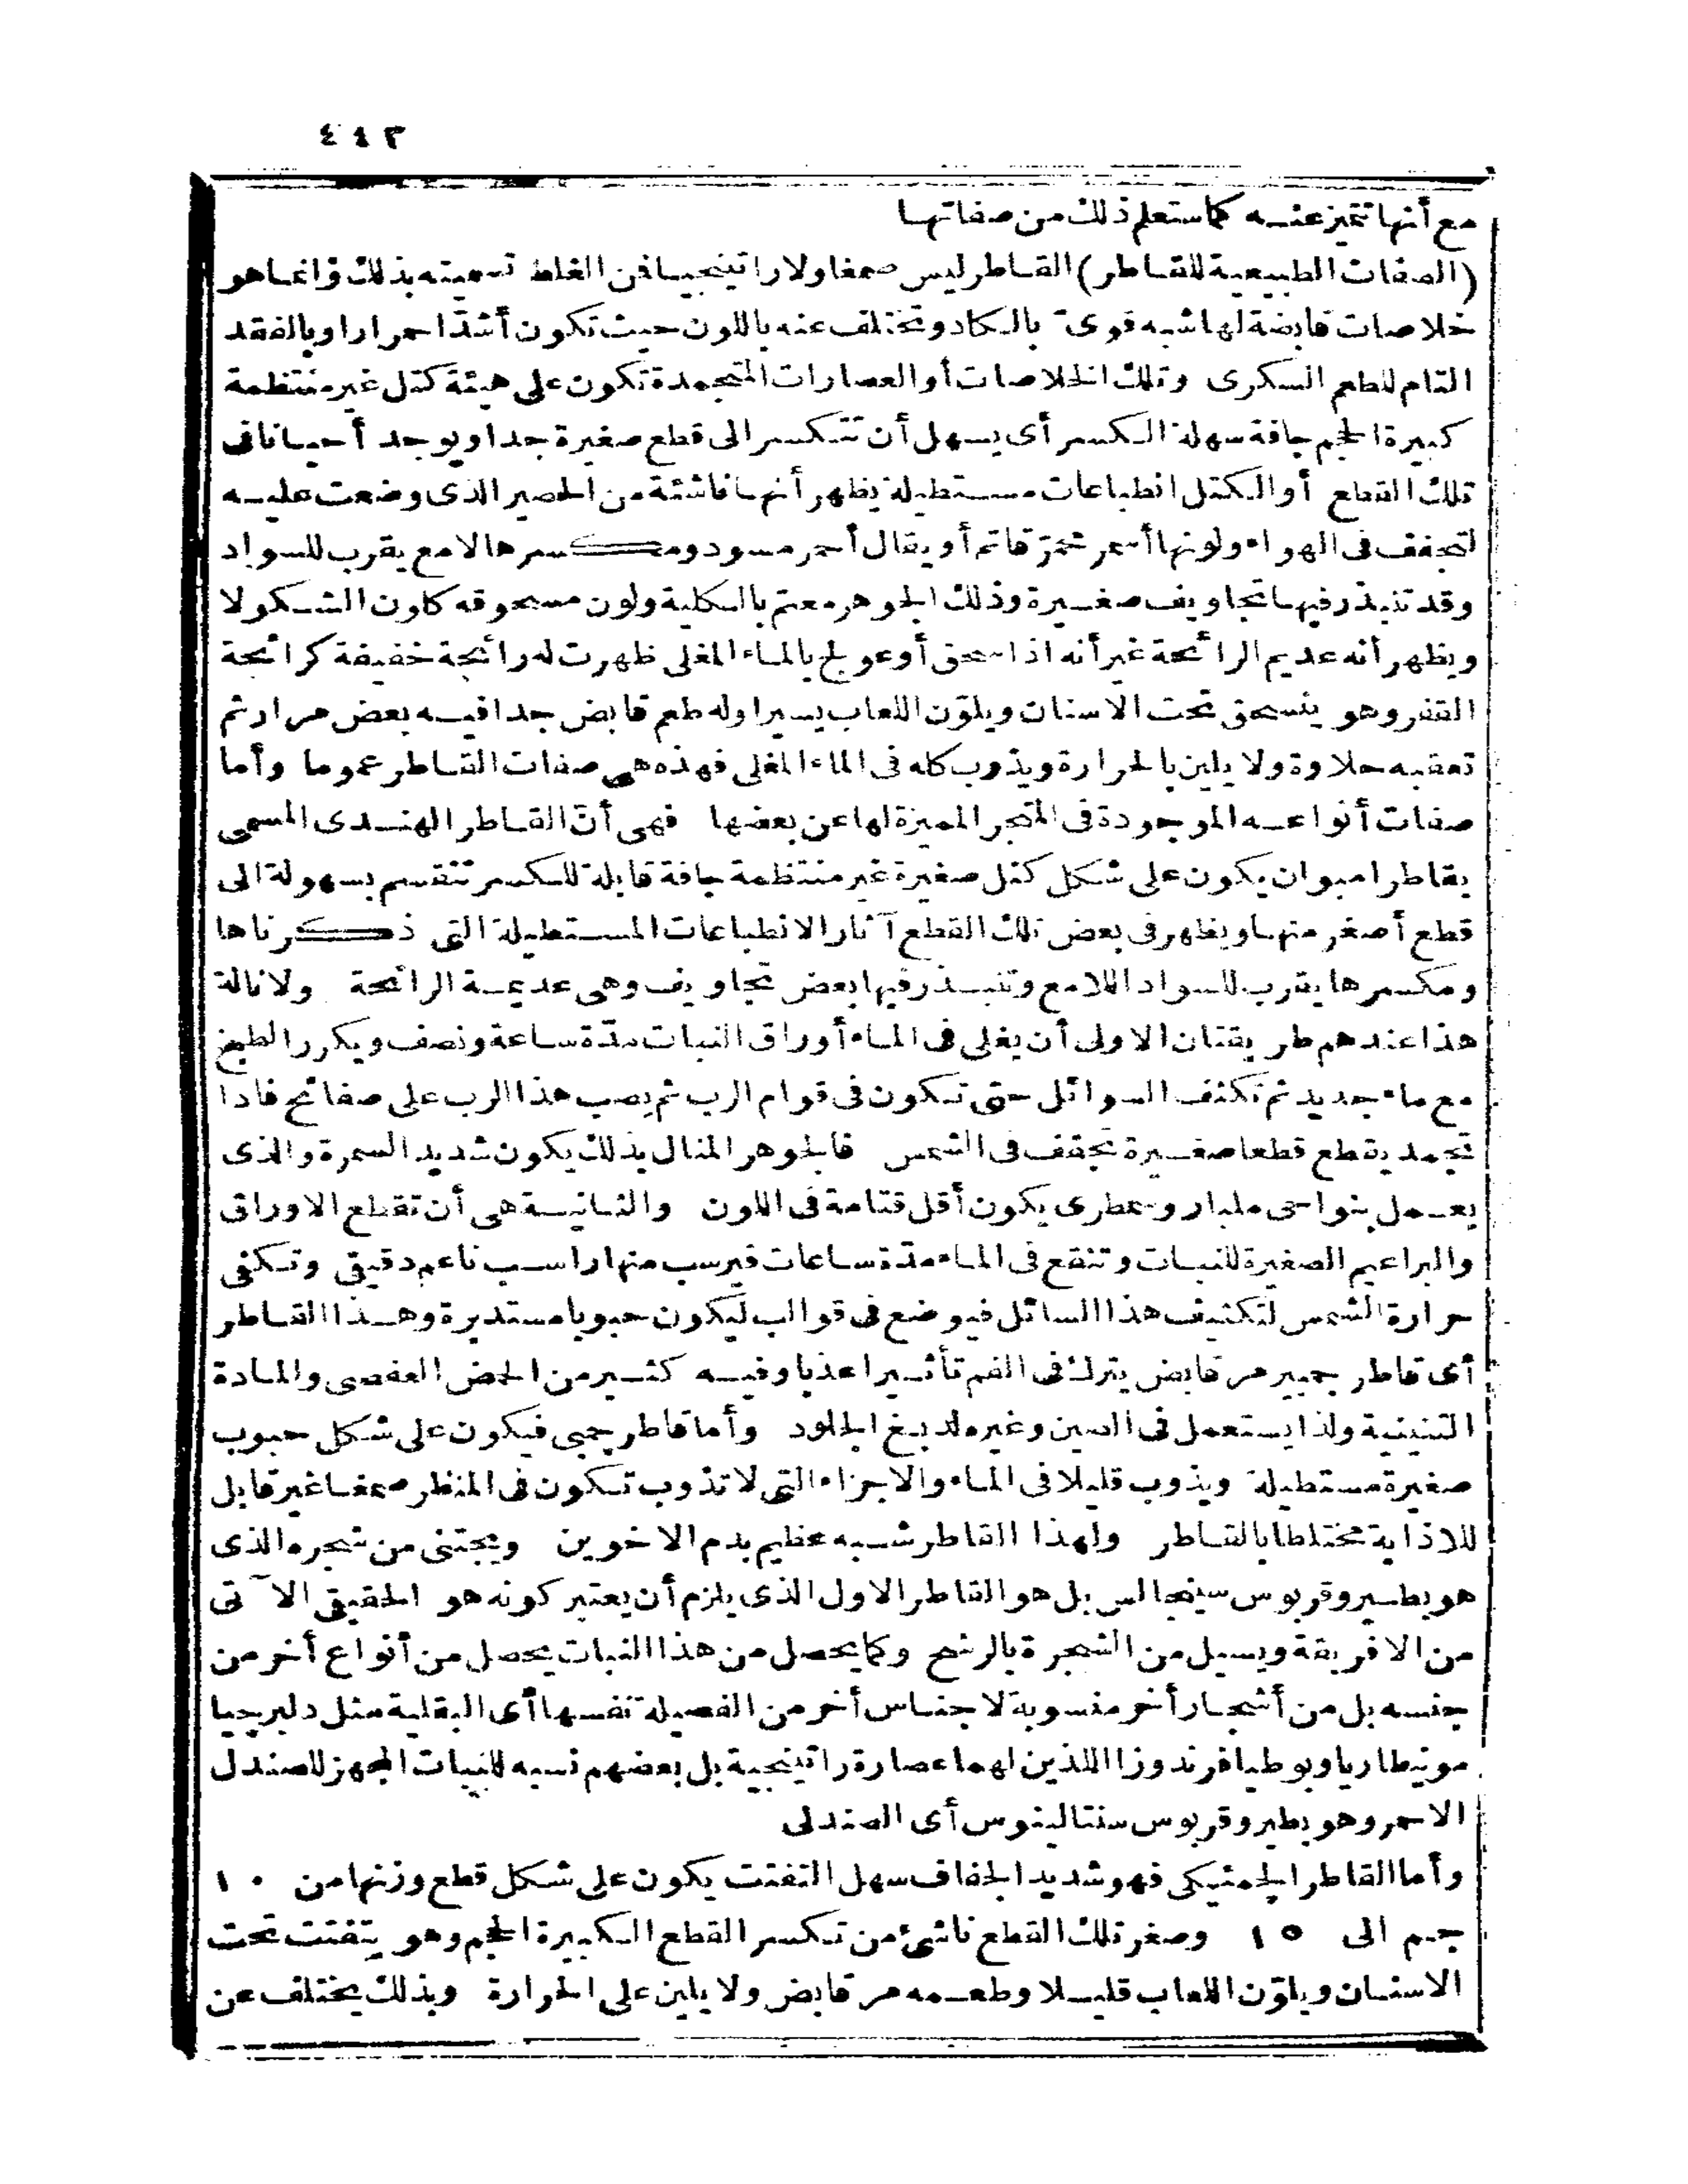 ٤٤٣
مع أنها تتميز عنه كما ستعلم ذلك من صفاتها
(الصفات الطبيعية للقاطر) القاطر ليس صمغا ولا راتينجيا فمن الغلط تسميته بذلك وانما هو
خلاصات قابضة لها شبه قوى بالكاد وتختلف عنه باللون حيث تكون أشد احمرارا وبالفقد
التام للطعم السكرى وتلك الخلاصات أو العصارات المتجمدة تكون على هيئة كتل غير منتظمة
كبيرة الحجم جافة سهلة الكسر أى يسهل أن تتكسر الى قطع صغيرة جدا ويوجد أحيانا فى
تلك القطع أو الكتل انطباعات مستطيلة يظهر أنها ناشئة من الحصير الذى وضعت عليه
لتجفف فى الهواء ولونها أسمر محمر قاتم أو يقال أحمر مسود ومكسرها لامع يقرب للسواد
وقد تنبذر فيها تجاويف صغيرة وذلك الجوهر معتم بالكلية ولون مسحوقه كلون الشكولا
ويظهر أنه عديم الرائحة غير أنه اذا سحق أو عولج بالماء المغلى ظهرت له رائحة خفيفة كرائحة
القفر وهو ينسحق تحت الاسنان ويلون اللعاب يسيرا وله طعم قابض جدا فيه بعض مرار ثم
تعقبه حلاوة ولا يلين بالحرارة ويذوب كله فى الماء المغلى فهذه هى صفات القاطر عموما وأما
صفات أنواعه الموجودة فى المتجر المميزة لها عن بعضها فهى أن القاطر الهندى المسمى
بقاطر امبوان يكون على شكل كتل صغيرة غير منتظمة جافة قابلة للكسر تنقسم بسهولة الى
قطع أصغر منها ويظهر فى بعض تلك القطع آثار الانطباعات المستطيلة التى ذكرناها
ومكسرها يقرب للسواد اللامع وتنبذر فيها بعض تجاويف وهى عديمة الرائحة ولانالة
هذا عندهم طريقتان الاولى أن يغلى فى الماء أوراق النبات مدة ساعة ونصف ويكرر الطبخ
مع ماء جديد ثم تكثف السوائل حتى تكون فى قوام الرب ثم يصب هذا الرب على صفائح فاذا
تجمد يقطع قطعا صغيرة تجفف فى الشمس فالجوهر المنال بذلك يكون شديد السمرة والذى
يعمل بنواحى مليبار وسطرى يكون أقل قتامة فى اللون والثانية هى أن تقطع الاوراق
والبراعيم الصغيرة للنبات وتنقع فى الماء مدة ساعات فيرسب منها راسب ناعم دقيقى وتكفى
حرارة الشمس لتكثيف هذا السائل فيوضع فى قوالب ليكون حبوبا مستديرة وهذا القاطر
أى قاطر جمبير مر قابض يترك فى الفم تأثيرا عذبا وفيه كثير من الحمض العفصى والمادة
التنينية ولذا يستعمل فى الصين وغيره لدبغ الجلود وأما قاطر جمبى فيكون على شكل حبوب
صغيرة مستطيلة ويذوب قليلا فى الماء والاجزاء التى لا تذوب تكون فى المنظر صمغا غير قابل
للاذابة مختلطا بالقاطر ولهذا القاطر شبه عظيم بدم الاخوين ويجتنى من شجره الذى
هو بطيروقربوس سينجالس بل هو القاطر الاول الذى يلزم أن يعتبر كونه هو الحقيقى الآتى
من الافريقة ويسيل من الشجرة بالرشح وكما يحصل من هذا النبات يحصل من أنواع أخر من
جنسه بل من أشجار أخر منسوبة لاجناس أخر من الفصيلة نفسها أى البقلية مثل دلبرجيا
مونيطاريا وبوطيا فرندوزا اللذين لهما عصارة راتينجية بل بعضهم نسبه للنبات المجهز للصندل
الاحمر وهو بطيروقربوس سنتالينوس أى الصندلى
وأما القاطر الجمئيكى فهو شديد الجفاف سهل التفتت يكون على شكل قطع وزنها من ١٠
جم الى ١٥ وصغر تلك القطع ناشئ من تكسر القطع الكبيرة الحجم وهو يتفتت تحت
الاسنان ويلون اللعاب قليلا وطعمه مر قابض ولا يلين على الحرارة وبذلك يختلف عن